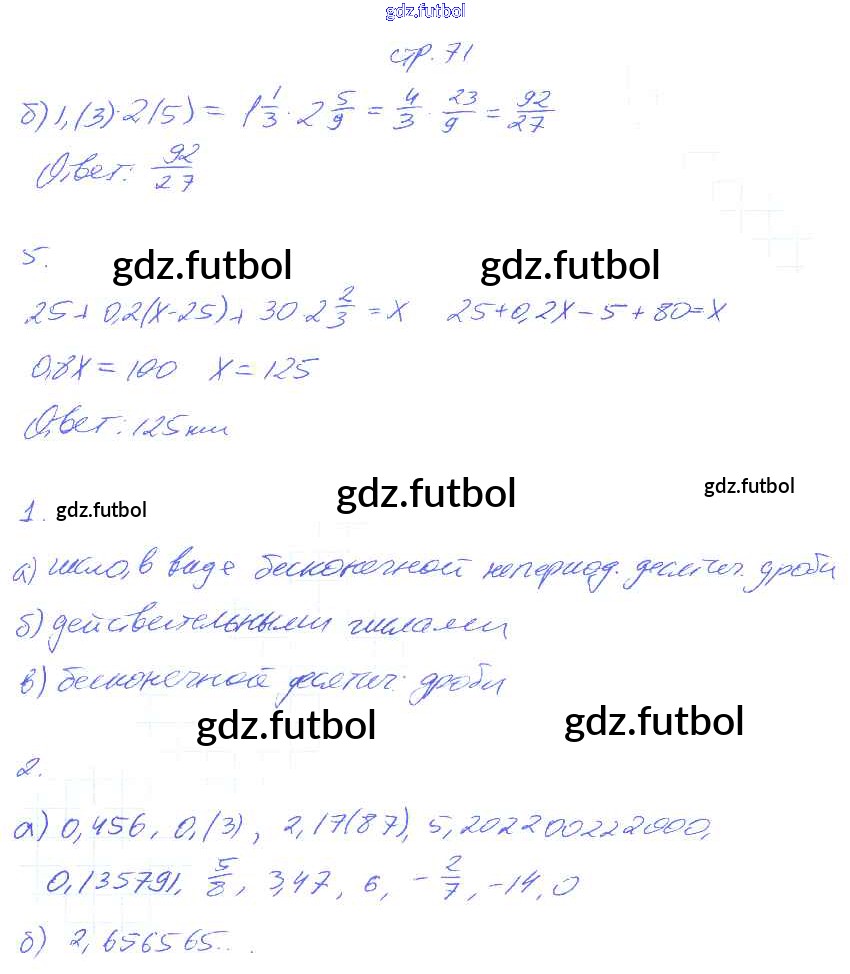 gdz.futbol
стр. 71
б) 1,(3)·2(5) = 1 1/3 · 2 5/9 = 4/3 · 23/9 = 92/27
Ответ: 92/27
5.
gdz.futbol gdz.futbol
25+ 0,2(x-25)+ 30·2 2/3 = x 25+0,2x-5+80=x
0,8x = 100 x = 125
Ответ: 125 км
gdz.futbol gdz.futbol
1. gdz.futbol
а) число, в виде бесконечной непериод. десятич. дроби
б) действительными числами
в) бесконечной десятич. дроби
gdz.futbol gdz.futbol
2.
а) 0,456, 0,(3), 2,17(87), 5,202200222000,
0,135791, 5/8, 3,47, 6, -2/7, -14, 0
б) 2,656565...